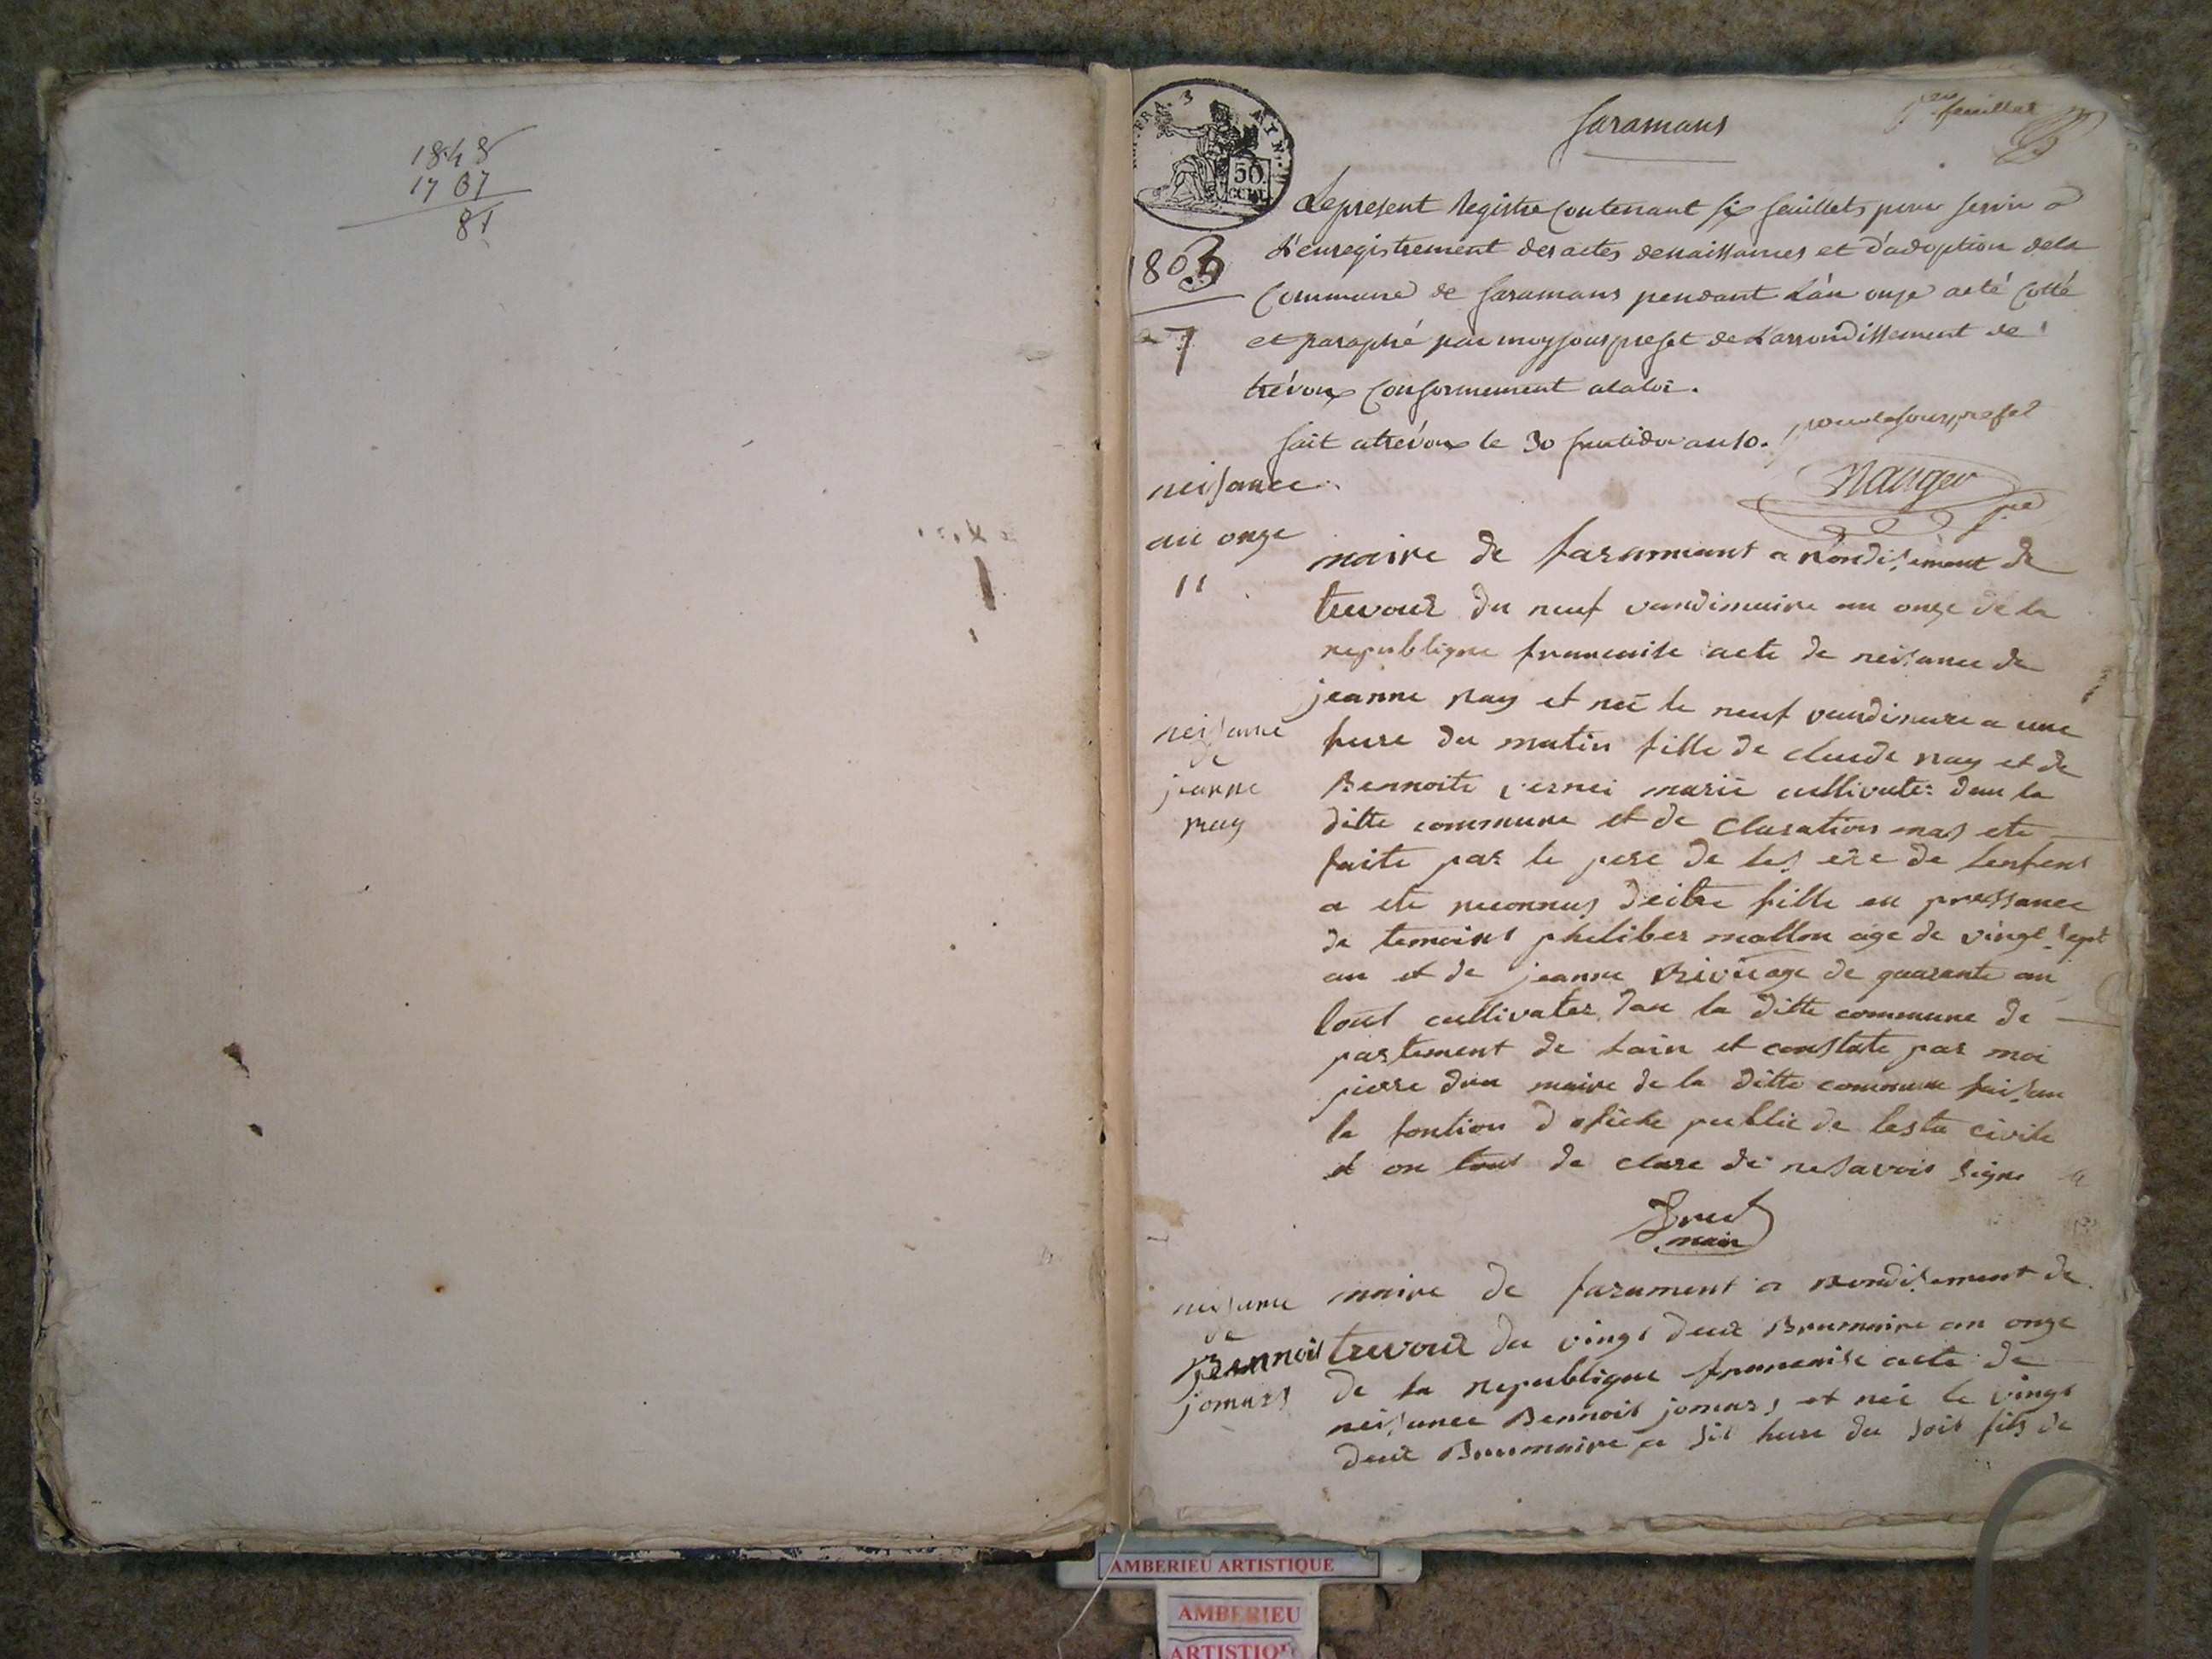 1848
1767
81
faramans
1er feuillet
50
CENT.
Le present Registre contenant six feuillets pour servir a
L'enregistrement des actes denaissances et d'adoption dela
1803
Commune de faramans pendant L'an onze a eté Cotté
et paraphé par moy sous prefet de L'arrondissement de
7
trévoux Conformement alaloi.
fait atrévoux le 30 fructidor an 10.
pour le sous prefet
neissance
an onze
11
maire de faramant a Rondisement de
trevoux du neuf vandimaire an onze de la
republique francaise acte de neisance de
jeanne ray et neé le neuf vandimaire a une
neisance
de
jeanne
ray
heure du matin fille de claude ray et de
Bennoite vernei marié cultivater dan la
ditte commune et de claration mas ete
faite par le pere de les exe de lenfent
a ete reconnus deitre fille en pressance
de temoins pheliber mallon age de vingt sept
an et de jeanne age de quarante an
tout cultivater dan la ditte commune de
partement de lain et constate par moi
piere dru maire de la ditte commune faisan
la fontion d ofiche public de lesta civile
et on tout de clare de ne savoir signe
Dru
mair
neisance
de
Bennoit
jomard
maire de farament a rondisement de
trevoux du vingt deux Brumaire an onze
de la republique francaise acte de
neisance Bennoit jomard et neé le vingt
deux Brumaire a sis heure du soir fils de
AMBERIEU ARTISTIQUE
AMBERIEU